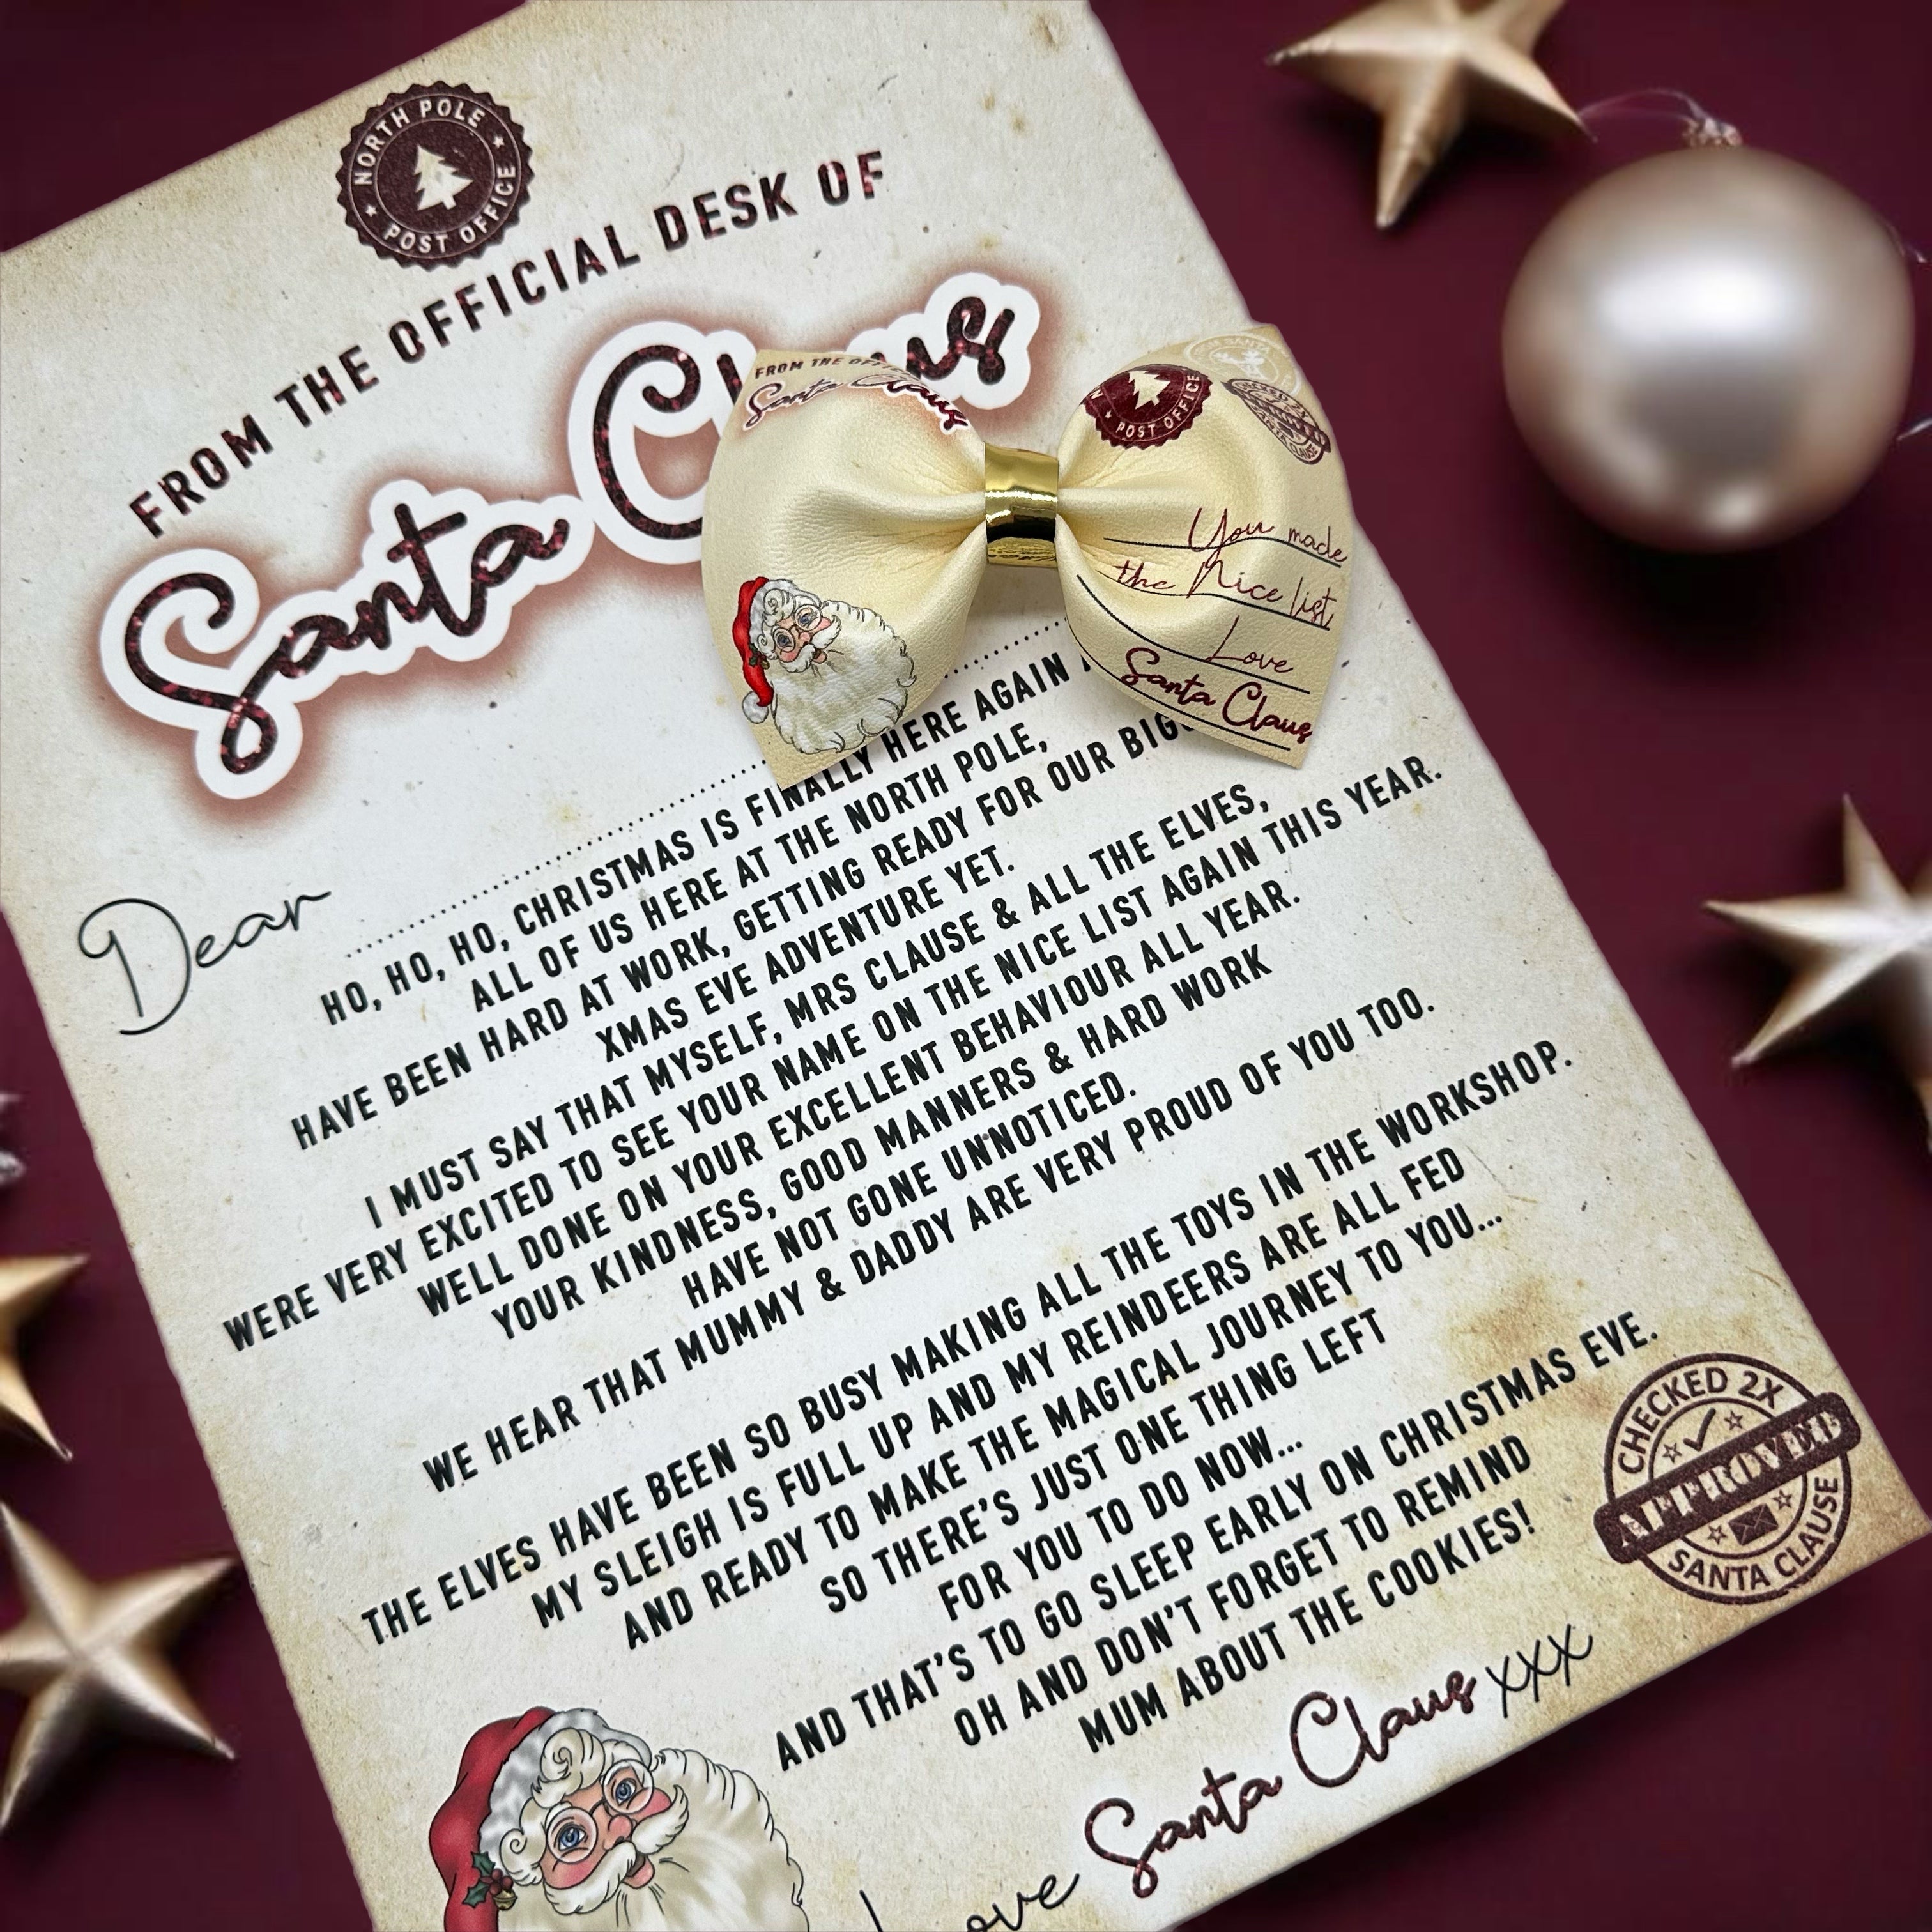 NORTH POLE
POST OFFICE
FROM THE OFFICIAL DESK OF
Santa Claus
FROM THE
Santa Claus
POST OFFICE
You made
the Nice list
Love
Santa Claus
Dear
HO, HO, HO, CHRISTMAS IS FINALLY HERE AGAIN
ALL OF US HERE AT THE NORTH POLE,
HAVE BEEN HARD AT WORK, GETTING READY FOR OUR
XMAS EVE ADVENTURE YET.
I MUST SAY THAT MYSELF, MRS CLAUSE & ALL THE ELVES,
WERE VERY EXCITED TO SEE YOUR NAME ON THE NICE LIST AGAIN THIS YEAR.
WELL DONE ON YOUR EXCELLENT BEHAVIOUR ALL YEAR.
YOUR KINDNESS, GOOD MANNERS & HARD WORK
HAVE NOT GONE UNNOTICED.
WE HEAR THAT MUMMY & DADDY ARE VERY PROUD OF YOU TOO.
THE ELVES HAVE BEEN SO BUSY MAKING ALL THE TOYS IN THE WORKSHOP.
MY SLEIGH IS FULL UP AND MY REINDEERS ARE ALL FED
AND READY TO MAKE THE MAGICAL JOURNEY TO YOU...
SO THERE'S JUST ONE THING LEFT
FOR YOU TO DO NOW...
AND THAT'S TO GO SLEEP EARLY ON CHRISTMAS EVE.
OH AND DON'T FORGET TO REMIND
MUM ABOUT THE COOKIES!
CHECKED 2X
APPROVED
SANTA CLAUSE
Love Santa Claus xxx